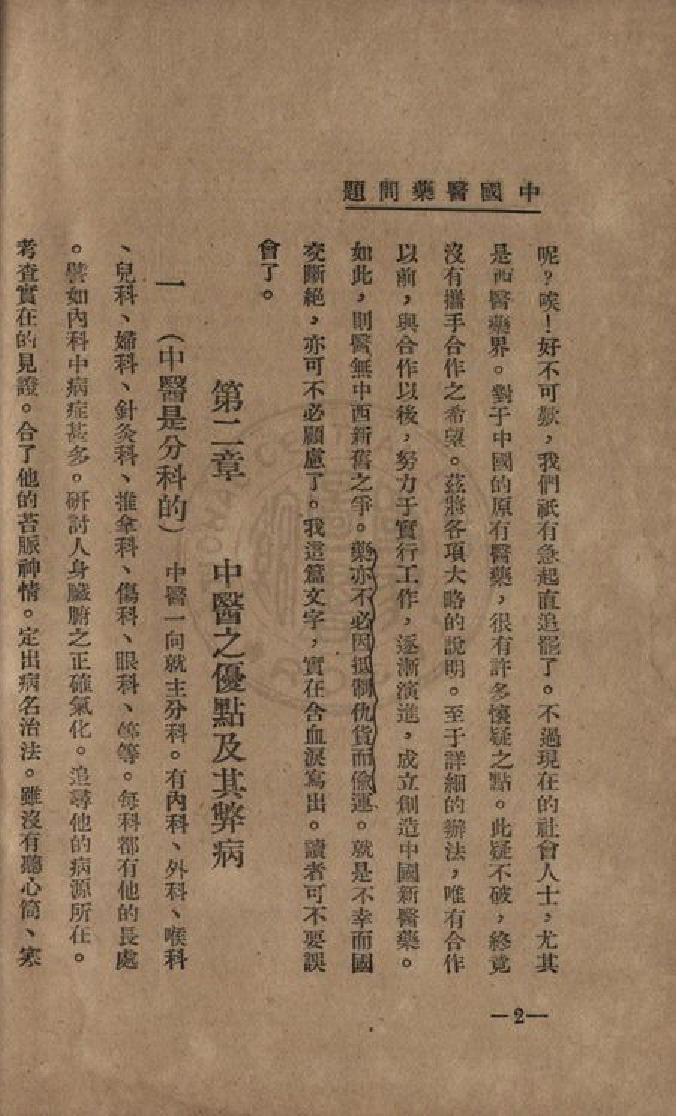 中國醫藥問題
呢?唉!好不可歎,我們祇有急起直追罷了。不過現在的社會人士,尤其
是西醫藥界。對于中國的原有醫藥,很有許多懷疑之點。此疑不破,終竟
沒有攜手合作之希望。茲將各項大略的說明。至于詳細的辦法,唯有合作
以前,與合作以後,努力于實行工作,逐漸演進,成立創造中國新醫藥。
如此,則醫無中西新舊之爭。藥亦不必因抵制仇貨而偷運。就是不幸而國
交斷絕,亦可不必顧慮了。我這篇文字,實在含血淚寫出。讀者可不要誤
會了。
第二章 中醫之優點及其弊病
一 (中醫是分科的) 中醫一向就主分科。有內科、外科、喉科
、兒科、婦科、針灸科、推拿科、傷科、眼科、等等。每科都有他的長處
。譬如內科中病症甚多。研討人身臟腑之正確氣化。追尋他的病源所在。
考查實在的見證。合了他的苔脈神情。定出病名治法。雖沒有聽心筒、寒
—2—